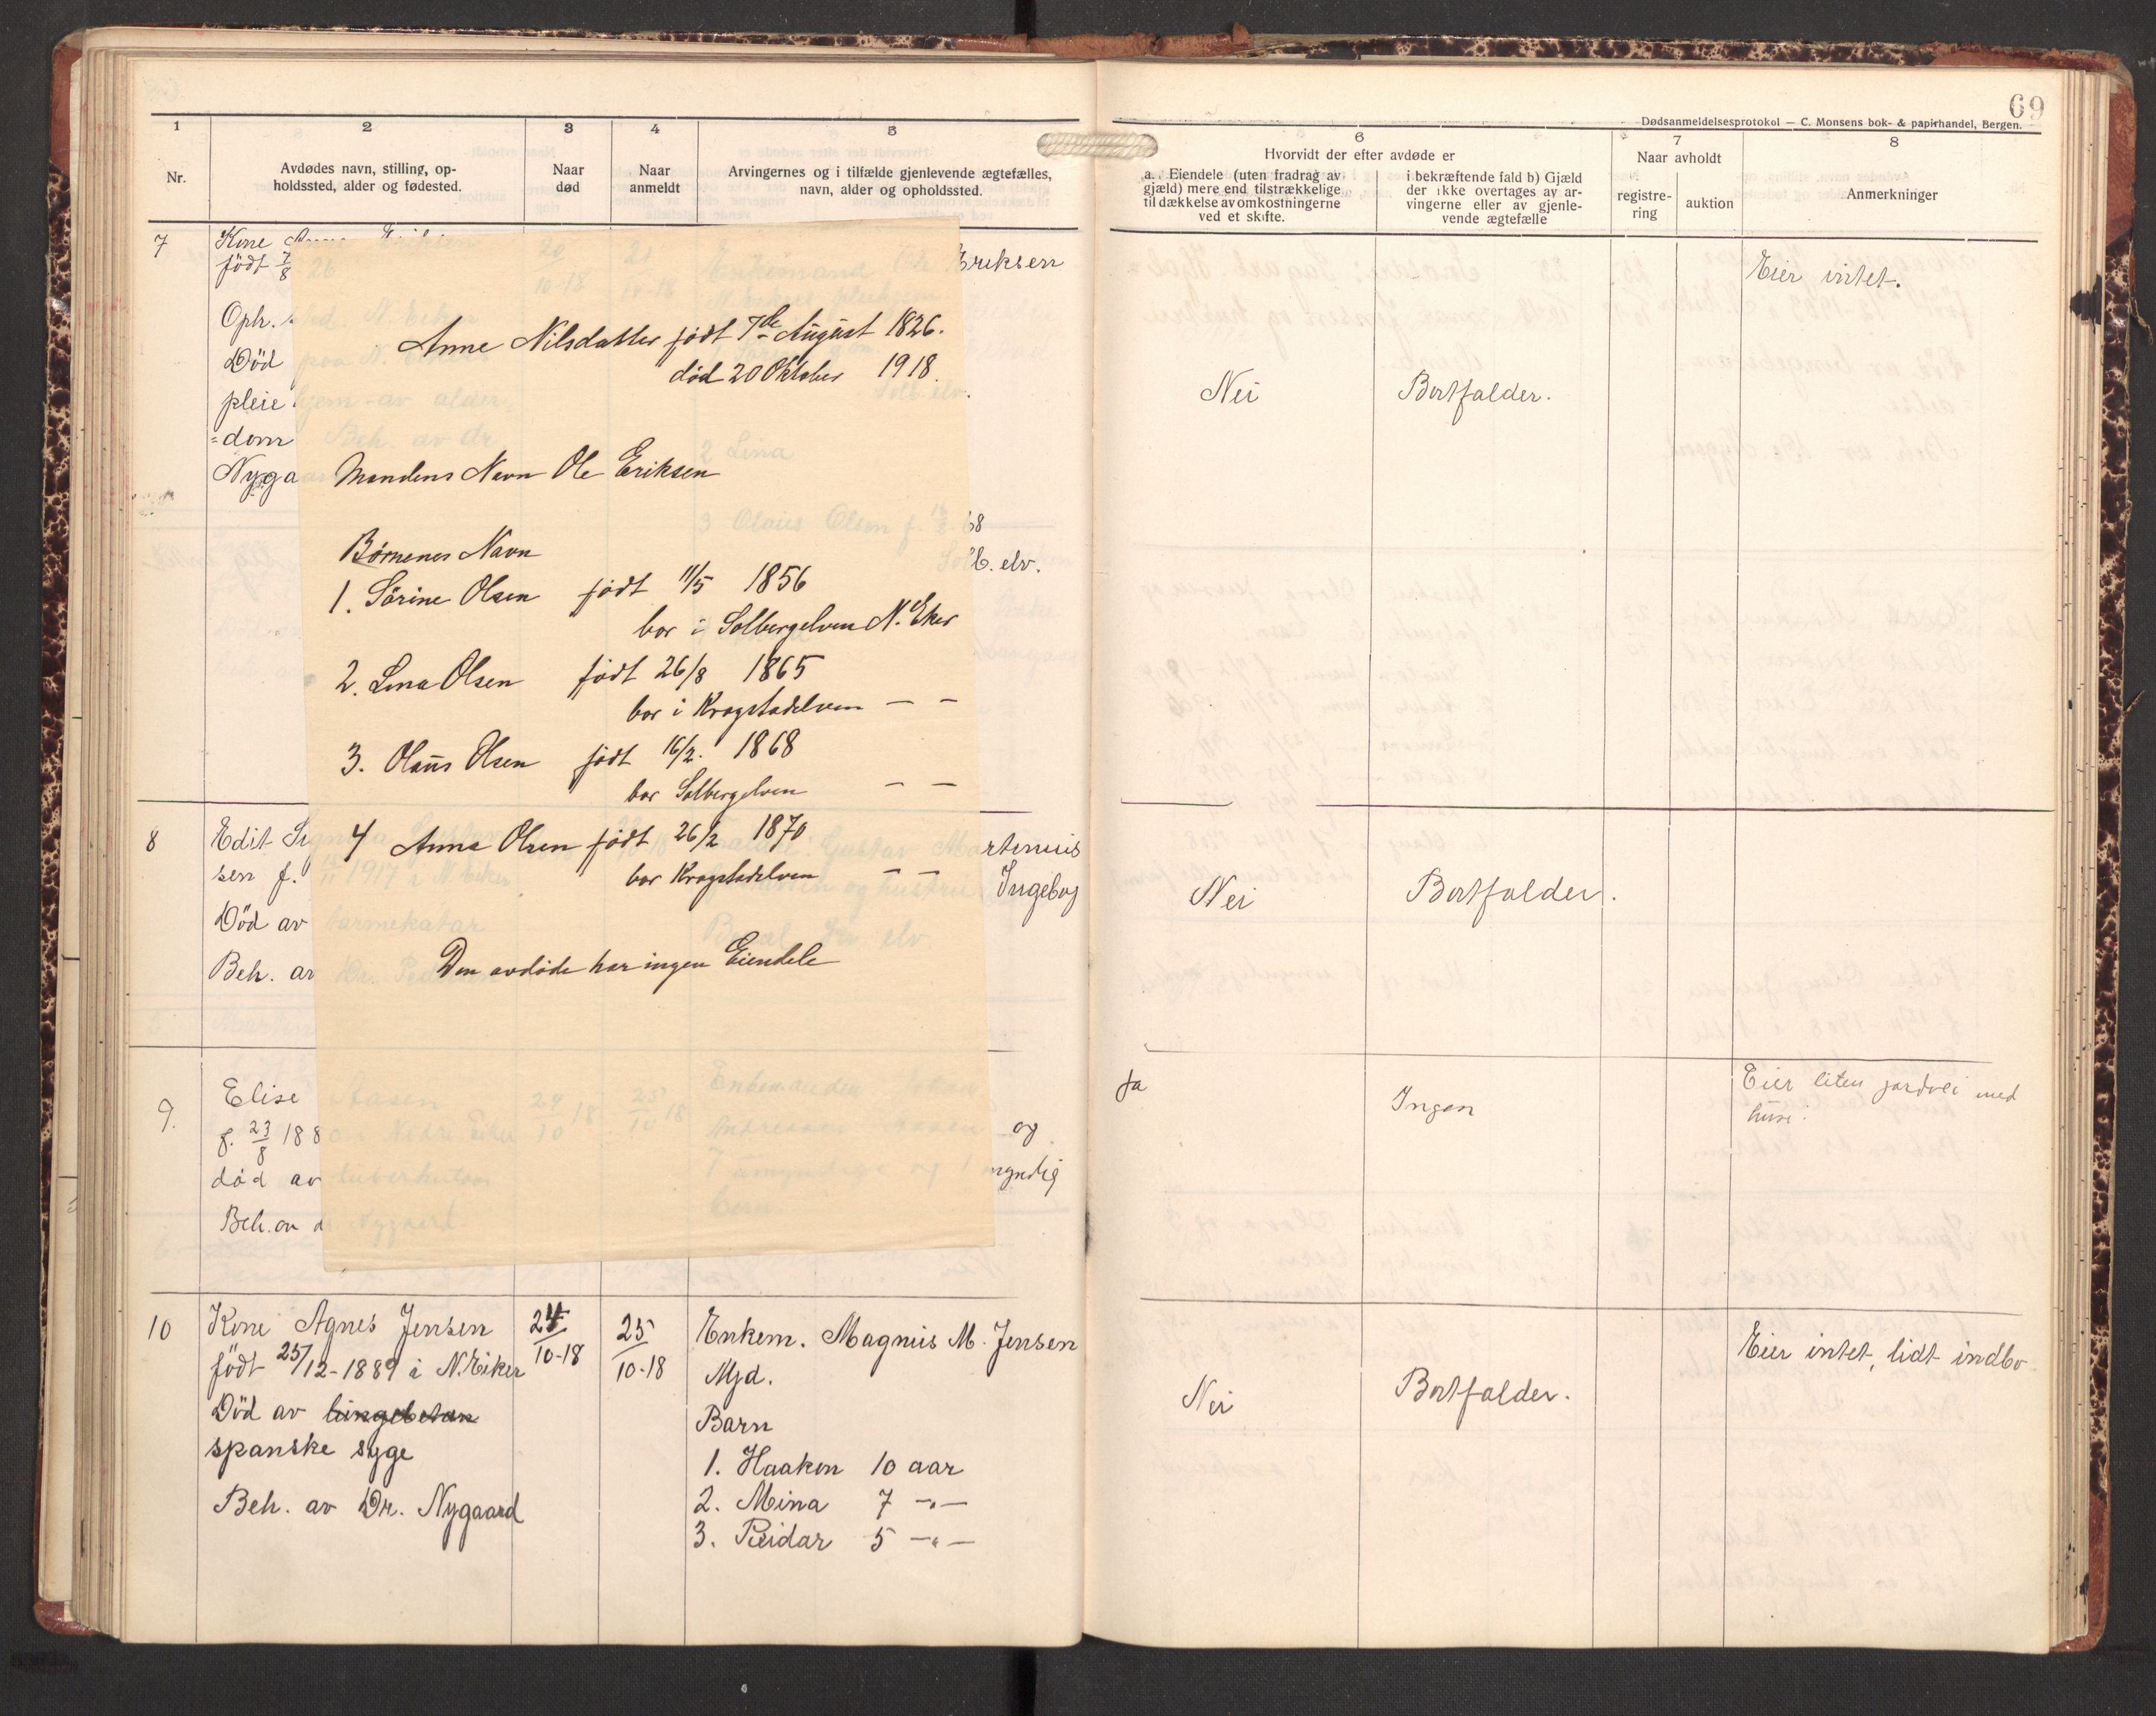 69
Dødsanmeldelsesprotokol — C. Monsens bok- & papirhandel, Bergen.
1
2
3
4
5
6
7
8
Nr.
Avdødes navn, stilling, op-
holdssted, alder og fødested.
Naar
død
Naar
anmeldt
Arvingernes og i tilfælde gjenlevende ægtefælles,
navn, alder og opholdssted.
Hvorvidt der efter avdøde er
a. Eiendele (uten fradrag av
gjæld) mere end tilstrækkelige
til dækkelse av omkostningerne
ved et skifte.
i bekræftende fald b) Gjæld
der ikke overtages av ar-
vingerne eller av gjenle-
vende ægtefælle
Naar avholdt
registre-
ring
auktion
Anmerkninger
7
Kone Anne Eriksen
født 7/8 26
Oph.
Død paa N. Eikers
pleiehjem av alder-
=dom Beh. av dr.
Nygaa
20/10-18
21/10-18
Enkemand Ole Eriksen
Solb. elv.
2 Lina
3 Olaus Olsen f. 16/2 68
Solb. elv.
Nei
Bortfalder.
Eier intet.
Anne Nilsdatter født 7de August 1826.
død 20 Oktober 1918.
Mandens Navn Ole Eriksen
Børnenes Navn
1. Sørine Olsen født 11/5 1856
bor i Solbergelven N. Eker
2. Lina Olsen født 26/8 1865
bor i Krogstadelven — —
3. Olaus Olsen født 16/2. 1868
bor Solbergelven — —
4 Anna Olsen født 26/2 1870
bor Krogstadelven — —
Den avdøde har ingen Eiendele
8
Edit Si
sen f. 1917 i N. Eiker
Død av tarmekatar
Beh. av Dr.
Gustav Martinius
og hustru Ingebog
elv
Nei
Bortfalder.
9.
Elise Aasen
f. 23/8 1880 i Nedre Eiker
død av tuberkulose
Beh. av d Nygaard
24/10 18
25/10 18
Enkemanden Johan
Andreassen Aasen og
7 umyndige og 1 myndig
barn
Ja
Ingen
Eier liten jordvei med
huse.
10
Kone Agnes Jensen
født 25/12-1889 i N. Eiker
Død av lungebetæn
spanske syge
Beh. av Dr. Nygaard
24/10-18
25/10-18
Enkem. Magnus M. Jensen
Mjd.
Barn
1. Haakon 10 aar
2. Mina 7 —"—
3. Reidar 5 —"—
Nei
Bortfalder.
Eier intet, lidt indbo